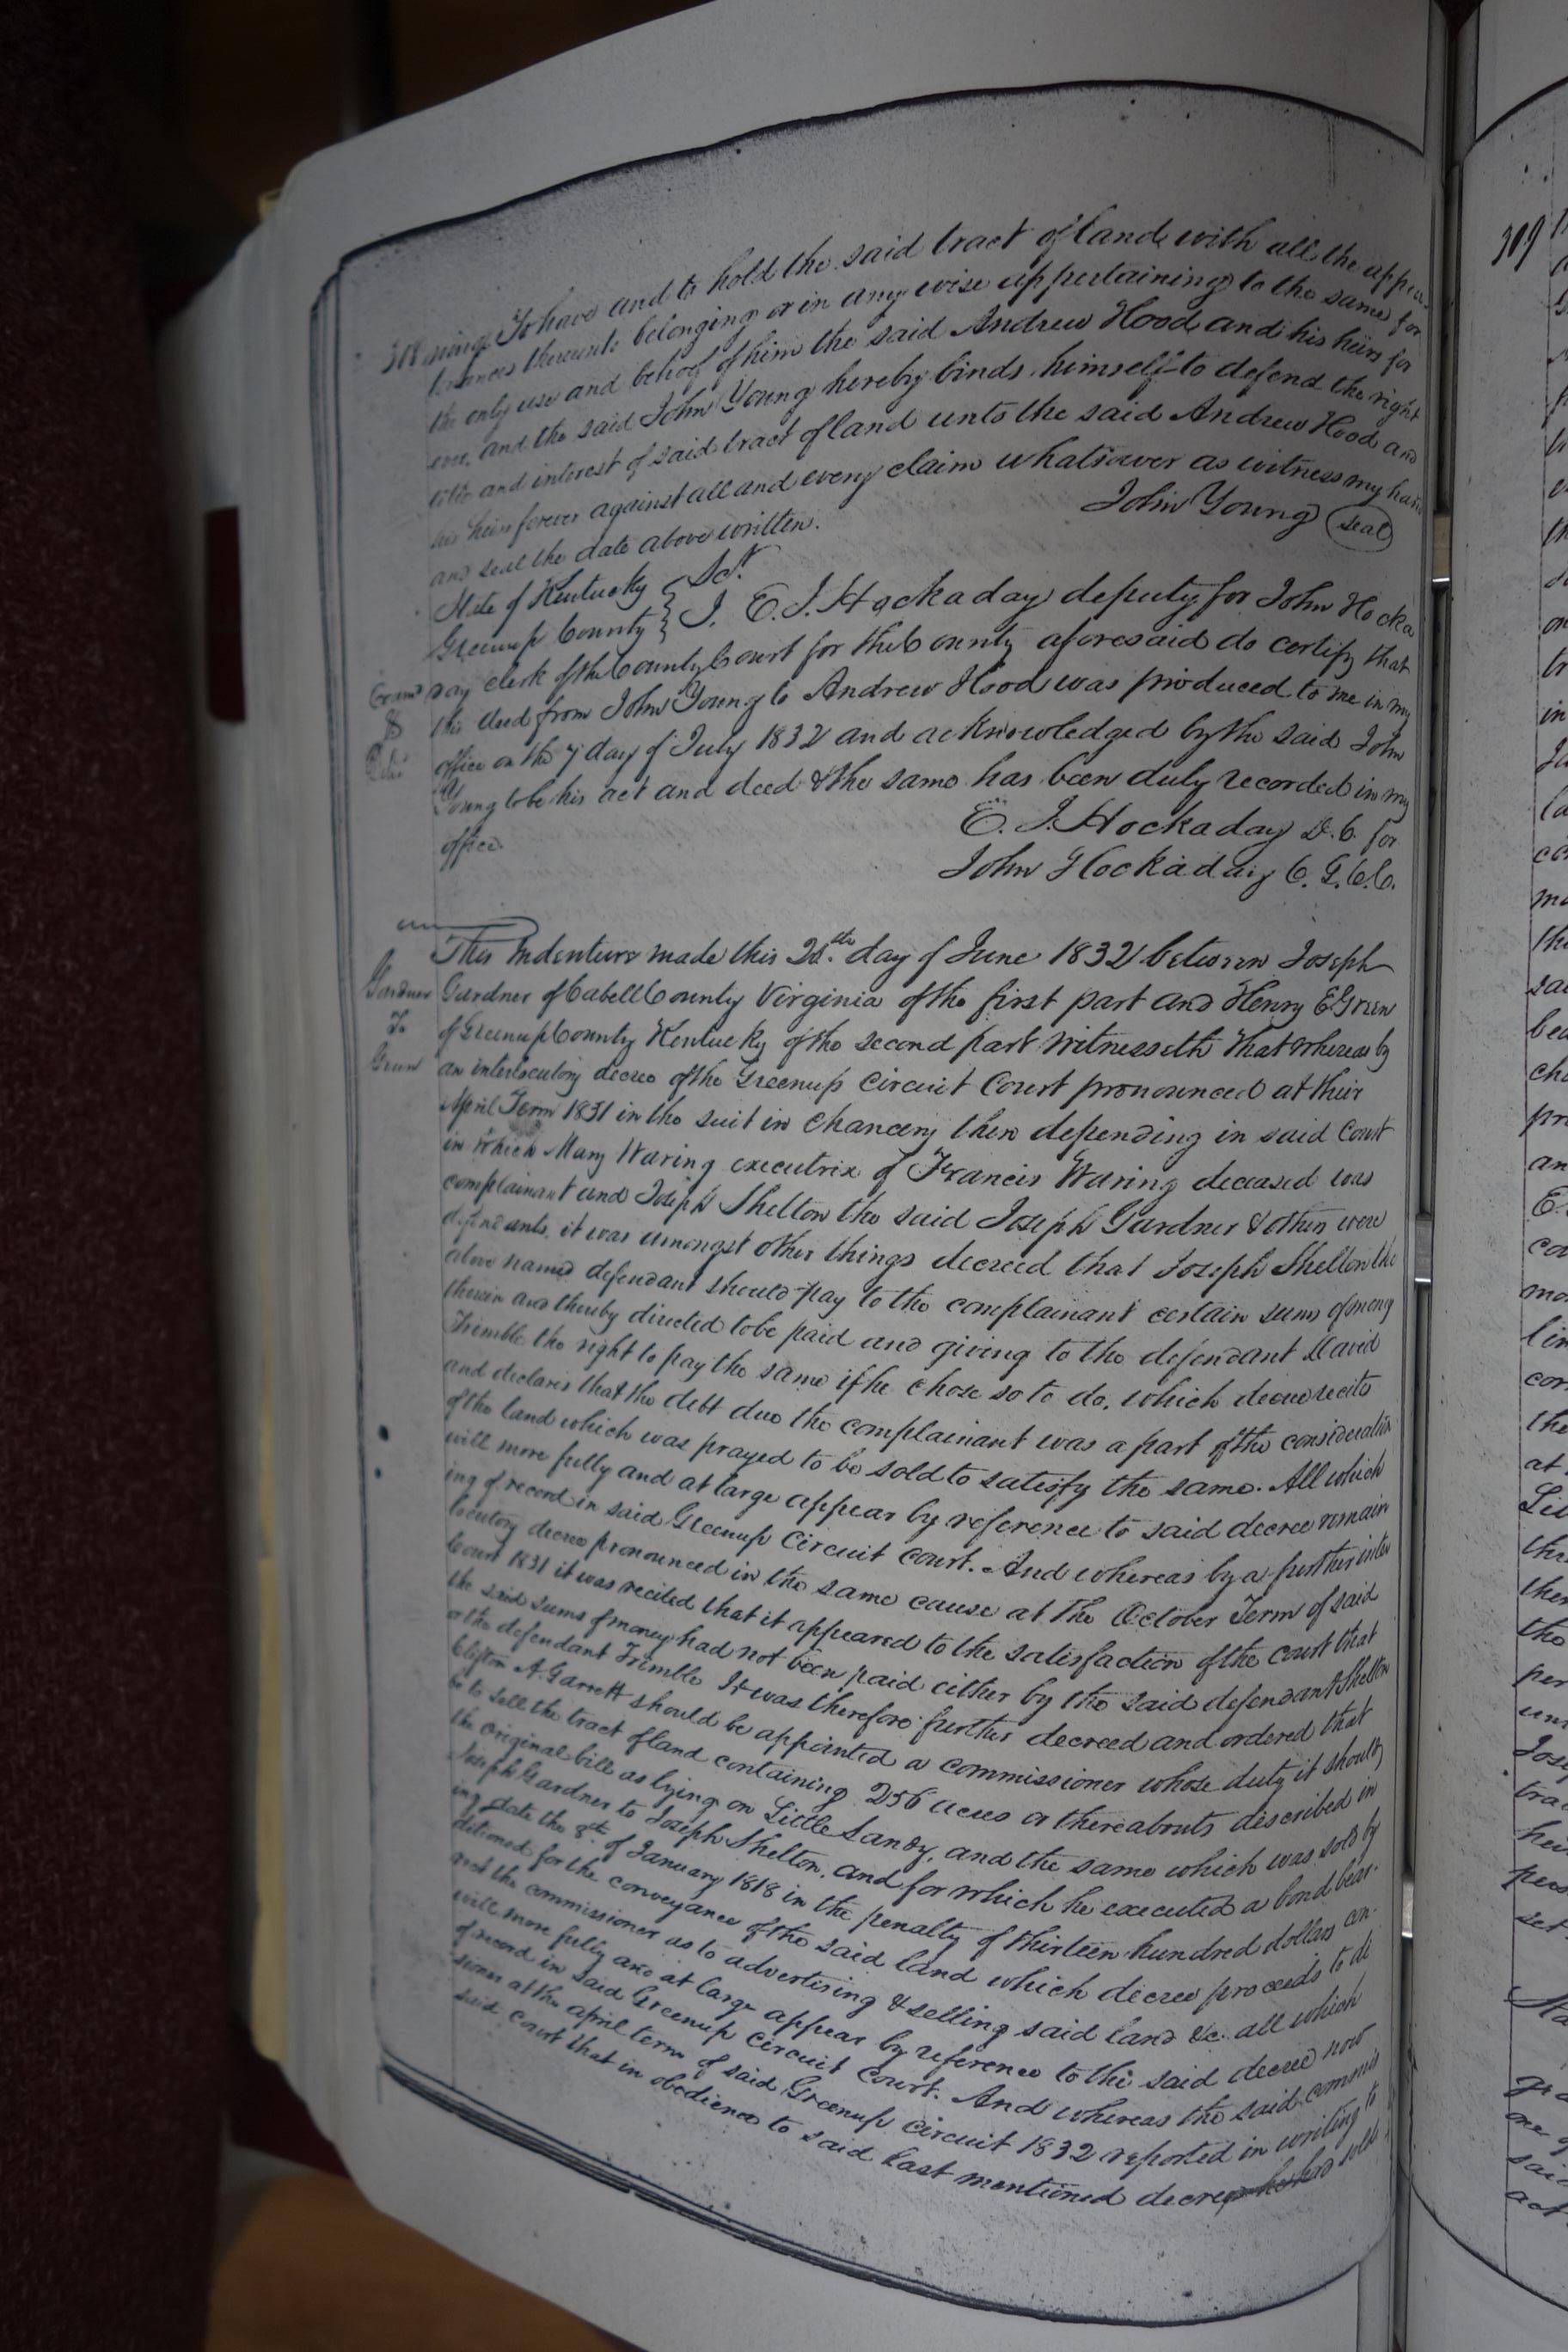 308 ning. To have and to hold the said tract of land with all the appur-
tenances thereunto belonging or in any wise appertaining to the same for
the only use and behoof of him the said Andrew Hood and his heirs for
ever, and the said John Young hereby binds himself to defend the right
title and interest of said tract of land unto the said Andrew Hood and
his heirs forever against all and every claim whatsoever as witness my hand
and seal the date above written.
John Young (Seal)
State of Kentucky } Sct.
Greenup County } I, E. J. Hockaday deputy for John Hocka
day clerk of the County Court for the County aforesaid do certify that
this deed from John Young to Andrew Hood was produced to me in my
office on the 7 day of July 1832 and acknowledged by the said John
Young to be his act and deed & the same has been duly recorded in my
office.
E. J. Hockaday D. C. for
John Hockaday C. G. C. C.
Exam'd
&
This Indenture made this 28.th day of June 1832 between Joseph
Gardner of Cabell County Virginia of the first part and Henry E Green
of Greenup County Kentucky of the second part Witnesseth That whereas by
an interlocutory decree of the Greenup Circuit Court pronounced at their
April Term 1831 in the suit in Chancery then depending in said Court
in which Mary Waring executrix of Francis Waring deceased was
complainant and Joseph Shelton the said Joseph Gardner & others were
defendants, it was amongst other things decreed that Joseph Shelton the
above named defendant should pay to the complainant certain sums of money
therein and thereby directed to be paid and giving to the defendant David
Trimble the right to pay the same if he chose so to do, which decree recites
and declares that the debt due the complainant was a part of the consideration
of the land which was prayed to be sold to satisfy the same. All which
will more fully and at large appear by reference to said decree remain
ing of record in said Greenup Circuit Court. And whereas by a further inter
locutory decree pronounced in the same cause at The October Term of said
Court 1831 it was recited that it appeared to the satisfaction of the court that
the said sums of money had not been paid either by the said defendant Shelton
or the defendant Trimble It was therefore further decreed and ordered that
Clifton A. Garrett should be appointed a commissioner whose duty it should
be to sell the tract of land containing 256 acres or thereabouts discribed in
the original bill as lying on Little Sandy, and the same which was sold by
Joseph Gardner to Joseph Shelton, and for which he executed a bond bear-
ing date the 8th of January 1818 in the penalty of thirteen hundred dollars con-
ditioned for the conveyance of the said land which decree proceeds to di
rect the commissioner as to advertising & selling said land &c. all which
will more fully and at large appear by reference to the said decree now
of record in said Greenup Circuit Court. And whereas the said commis
sioner at the april term of said Greenup Circuit 1832 reported in writing to
said court that in obedience to said last mentioned decree he had sold
Gardner
To
Green
309